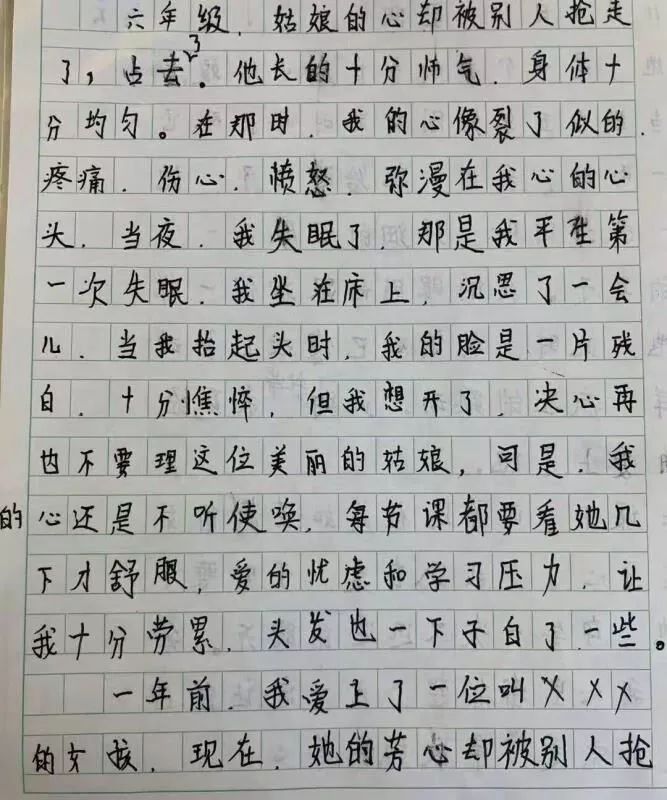 六年级，姑娘的心却被别人抢走
了，占去了。他长的十分帅气，身体十
分均匀。在那时，我的心像裂了似的，
疼痛，伤心，愤怒，弥漫在我心的心
头，当夜，我失眠了，那是我平生第
一次失眠，我坐在床上，沉思了一会
儿，当我抬起头时，我的脸是一片残
白，十分憔悴，但我想开了，决心再
也不要理这位美丽的姑娘，可是，我
的心还是不听使唤，每节课都要看她几
下才舒服，爱的忧虑和学习压力，让
我十分劳累，头发也一下子白了一些。
一年前，我爱上了一位叫XXX
的女孩，现在，她的芳心却被别人抢